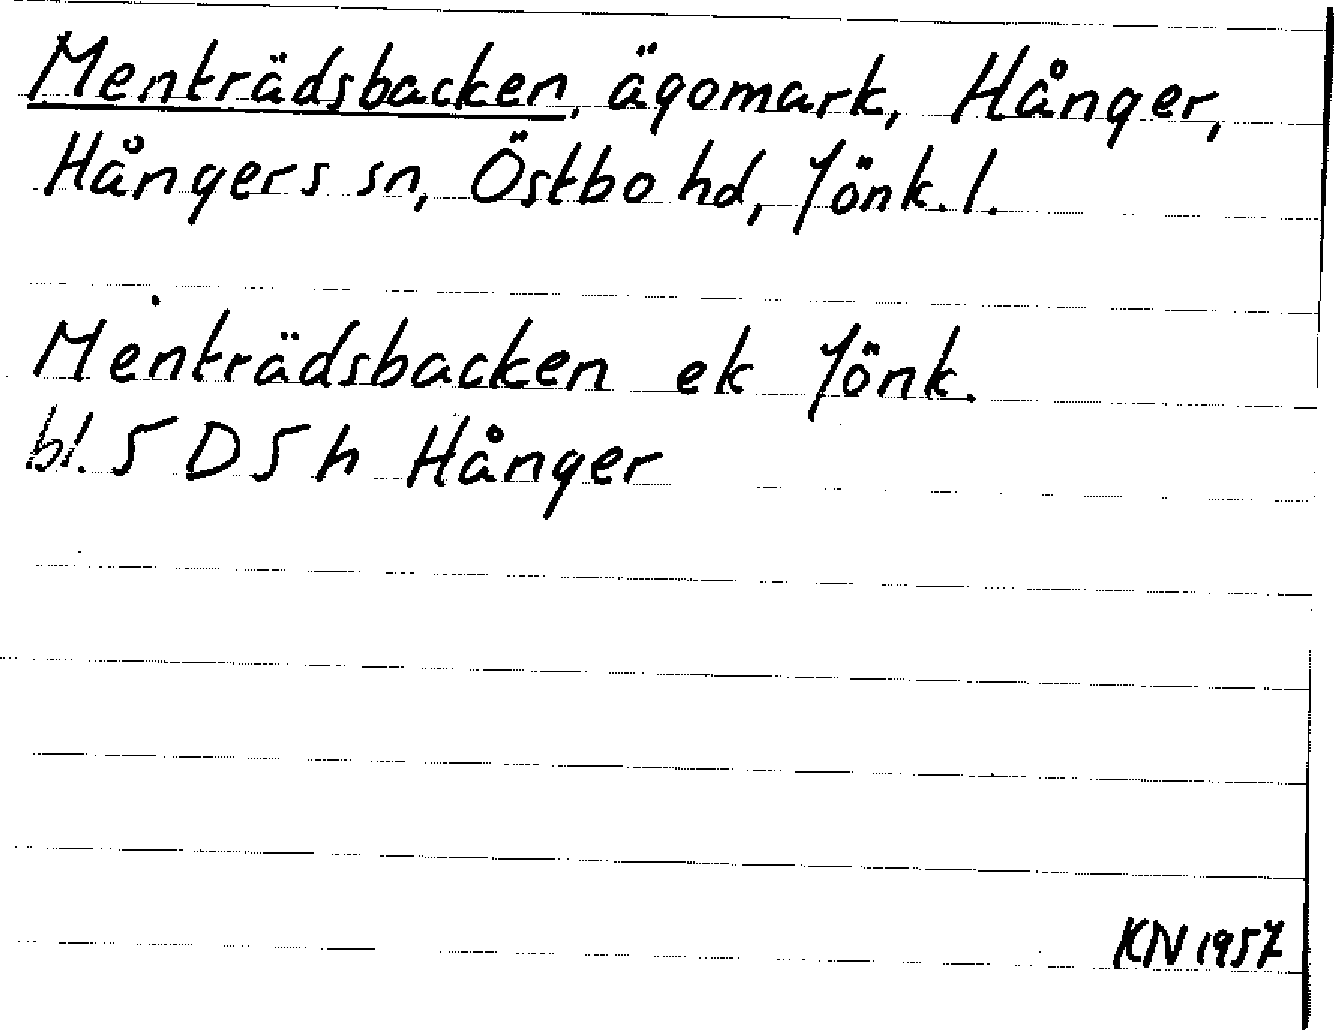 Menträdsbacken, ägomark, Hånger,
Hångers sn, Östbo hd, Jönk. l.
Menträdsbacken ek Jönk.
bl. 5 D 5 h Hånger
KN 1957